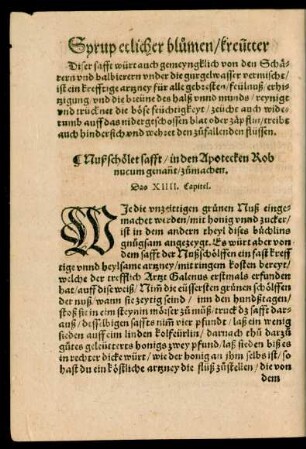 Syrup etlicher blůmen/kreütter
Diser safft würt auch gemeyngklich von den Schä-
rern vnd balbierern vnder die gurgelwasser vermischt/
ist ein krefftige artzney für alle gebresten/feülnuß/erhi-
tzigung/vnd die breüne des halß vnnd munds/reyniget
vnd trücknet die böse feüchtigkeyt/zeücht auch wide-
rumb auff das nidergeschossen blat oder zäpflin/treibt
auch hindersich vnd wehret den zůfallenden flüssen.
¶ Nußschölet safft/in den Apotecken Rob
nucum genant/zůmachen.
Das XIIII. Capitel.
WJe die vnzeittigen grünen Nuß einge-
machet werden/mit honig vnnd zucker/
ist in dem andern theyl dises büchlins
gnůgsam angezeygt. Es würt aber von
dem safft der Nußschölffen ein fast kreff
tige vnnd heylsame artzney/mit ringem kosten bereyt/
welche der trefflich Artzt Galenus erstmals erfunden
hat/auff dise weiß/Nim̃ die eüssersten grünen schölffen
der nuß/wann sie zeytig seind/ inn den hundßtagen/
stoß sie in eim steynin mörser zů můß/truck dz safft dar-
auß/desselbigen saffts nim̃ vier pfundt/laß ein wenig
sieden auff eim linden kolfeürlin/ darnach thů darzů
gůtes geleüterts honigs zwey pfund/laß sieden biß es
in rechter dicke würt/wie der honig an jhm selbs ist/so
hast du ein köstliche artzney die flüß zůstellen/die von
dem